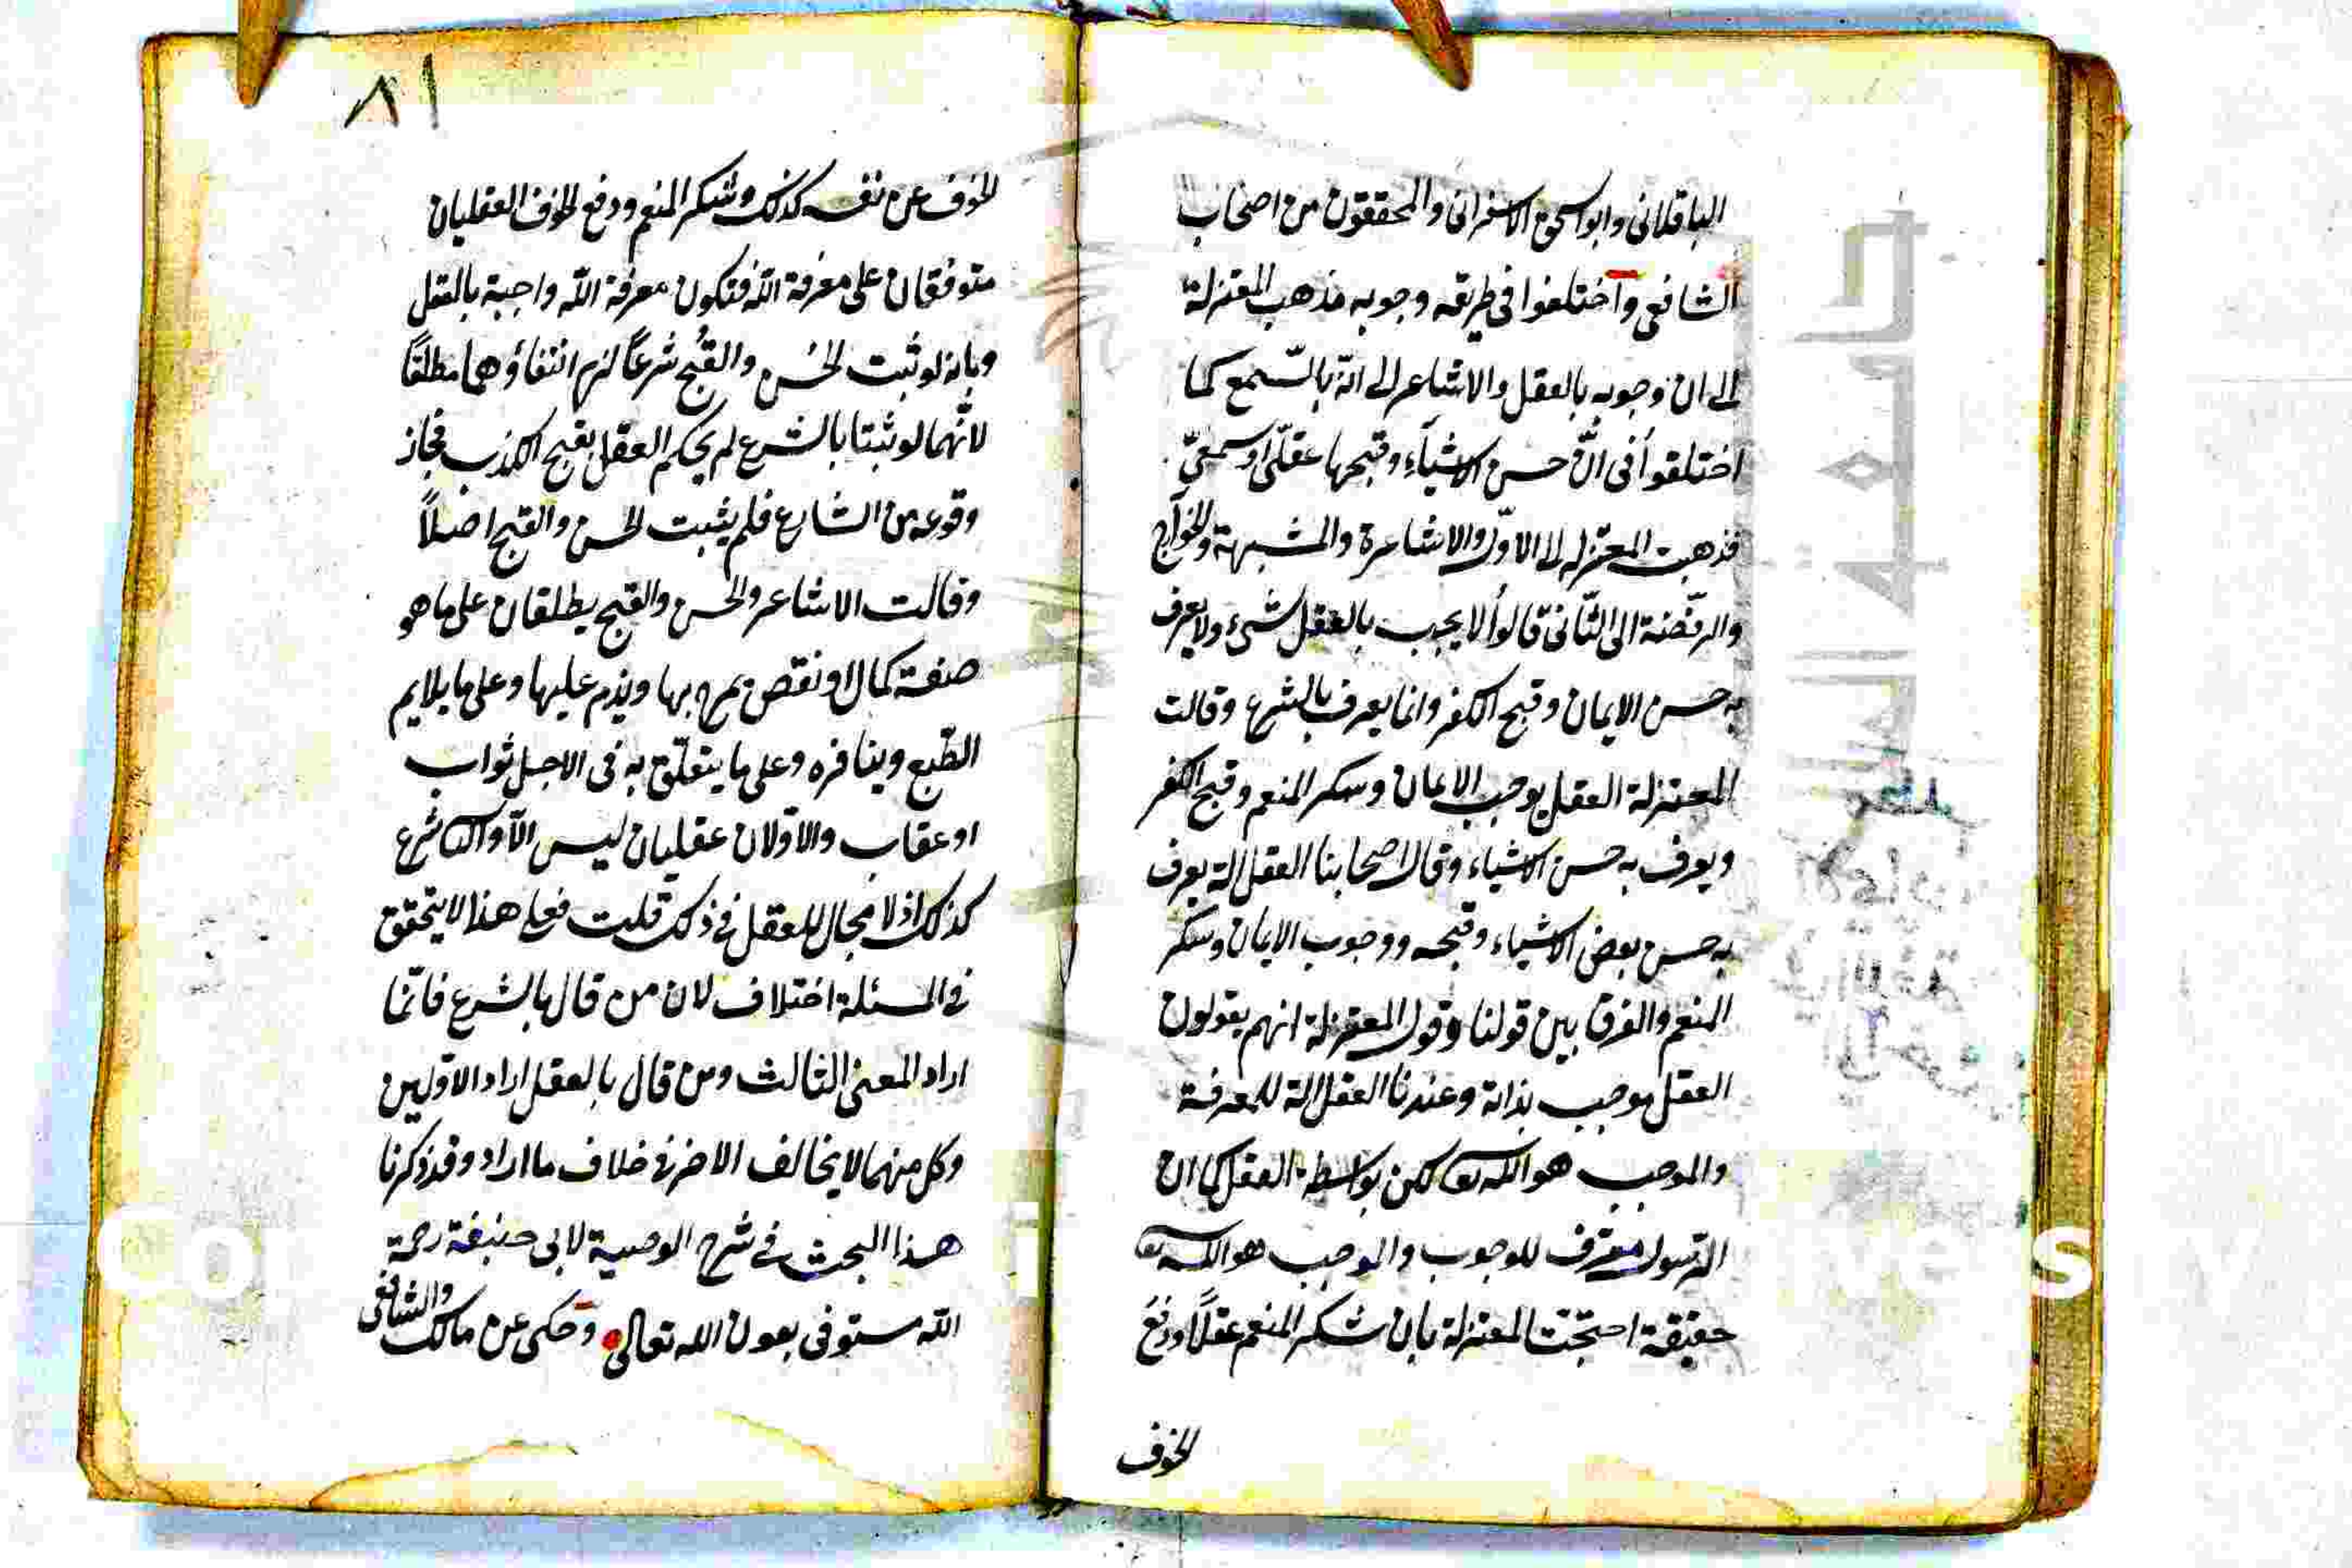 الباقلانى وابو اسحق الاسفرانى والمحققون من اصحاب
الشافعى واختلفوا فى طريقه وجوبه مذهب المعتزلة
الى ان وجوبه بالعقل والاشاعر الى انّه بالسّمع كما
اختلقوا فى انّ حسن الاشياء وقبحها عقلىّ او سمعىّ
فذهبت المعتزله الى الاوّل والاشاعرة والمشبهة والخوارج
والرفضة الى الثّانى قالوا لا يجب بالعقل شىء ولا يعرف
به حسن الايمان وقبح الكفر وانما يعرف بالشرع وقالت
المعتزلة العقل يوجب الايمان وشكر المنعم وقبح الكفر
ويعرف به حسن الاشياء وقال اصحابنا العقل الة يعرف
به حسن بعض الاشياء وقبحه ووجوب الايمان وشكر
المنعم والفرق بين قولنا وقول المعتزلة انهم يقولون
العقل موجب بذاته وعندنا العقل الة للمعرفة
والموجب هو الله تعا لكن بواسطة العقل كما ان
الرّسول معرّف للوجوب والموجب هو الله تعا
حقيقة احتجّت المعتزلة بان شكر المنعم عقلاً ودفع
الخوف
٨١
الخوف عن نفسه كذلك وشكر المنعم ودفع الخوف العقليان
متوفقان على معرفة الله فتكون معرفة الله واجبة بالعقل
وبانه لو ثبت الحُسن والقُبح شرعاً لزم انتفاؤهما مطلقاً
لانّهما لو ثبتا بالشرع لم يحكم العقل بقبح الكذب فجاز
وقوعه من الشارع فلم يثبت الحسن والقبح اصلاً
وقالت الاشاعر والحسن والقبح يطلقان على ما هو
صفة كمال او نقص يمدح بها ويذم عليها وعلى ما يلايم
الطّبع وينافره وعلى ما يتعلّق به فى الاجل ثواب
او عقاب والاوّلان عقليان ليس الاّ والثالث شرع
كذلك اذ لا مجال للعقل فى ذلك قلت فعلى هذا لا يتحقق
فى المسئلة اختلاف لان من قال بالشرع فانّما
اراد المعنى الثالث ومن قال بالعقل اراد الاوّلين
وكل منهما لا يخالف الاخر فى خلاف ما اراد وقد ذكرنا
هذا البحث فى شرح الوصية لابى حنيفة رحمة
الله مستوفى بعون الله تعالى وحكى عن مالك والشافعى